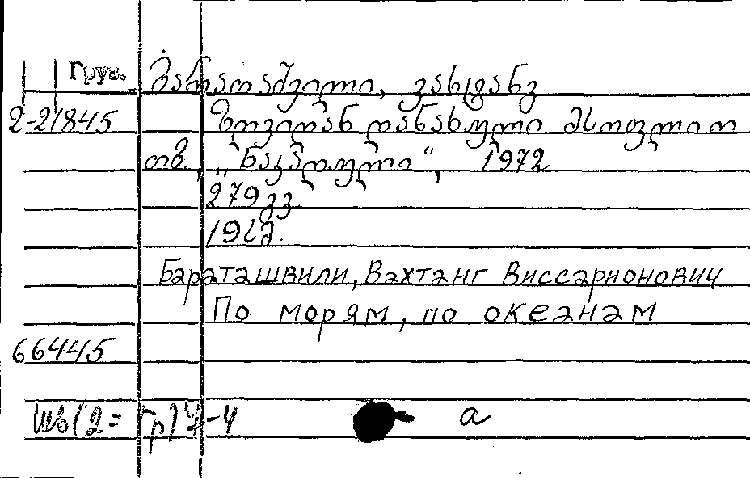 Груз. ბარათაშვილი, ვახტანგ
2-21845 ზღვიდან დანახული მსოფლიო
თბ., „ნაკადული“, 1972
279 გვ.
Бараташвили, Вахтанг Виссарионович
По морям, по океанам
66445
Шб(2=Гр)7-4 а